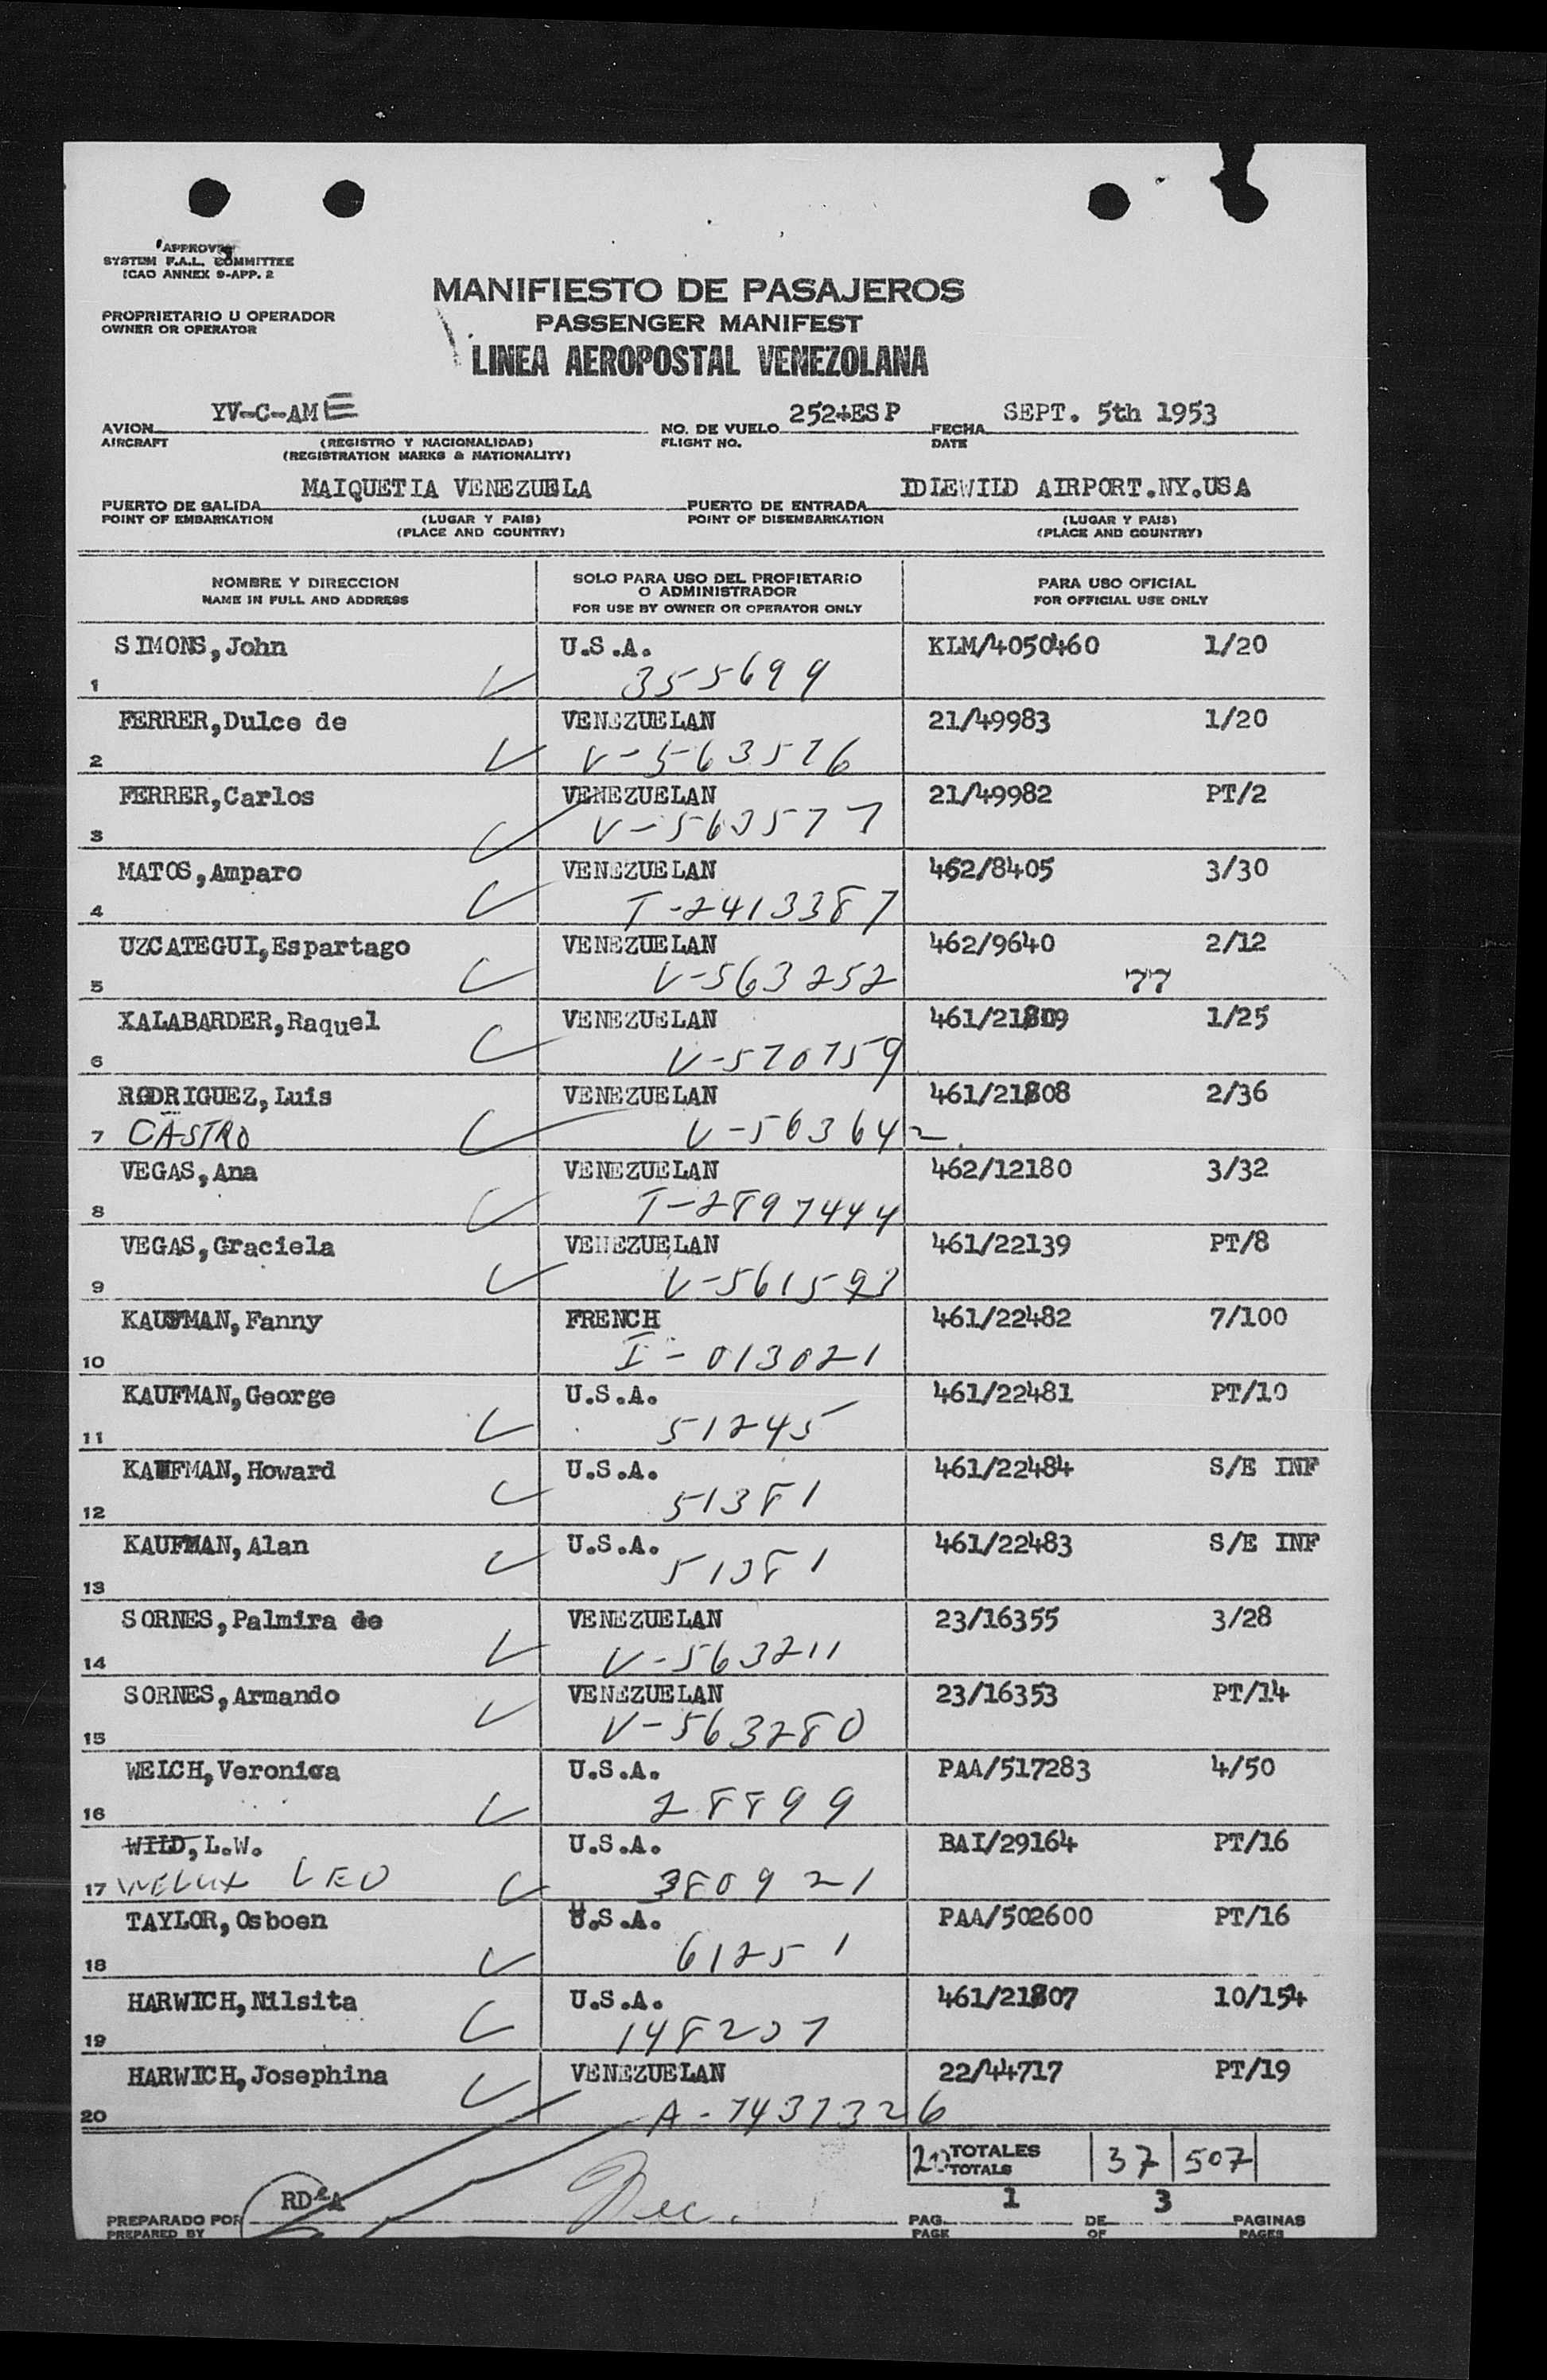 APPROVED
SYSTEM F.A.L. COMMITTEE
ICAO ANNEX 9-APP. 2
MANIFIESTO DE PASAJEROS
PROPRIETARIO U OPERADOR
OWNER OR OPERATOR
PASSENGER MANIFEST
LINEA AEROPOSTAL VENEZOLANA
YV-C-AME 252 ESP SEPT. 5th 1953
AVION NO. DE VUELO FECHA
AIRCRAFT (REGISTRO Y NACIONALIDAD) FLIGHT NO. DATE
(REGISTRATION MARKS & NATIONALITY)
MAIQUETIA VENEZUELA IDLEWILD AIRPORT.NY.USA
PUERTO DE SALIDA PUERTO DE ENTRADA
POINT OF EMBARKATION (LUGAR Y PAIS) POINT OF DISEMBARKATION (LUGAR Y PAIS)
(PLACE AND COUNTRY) (PLACE AND COUNTRY)
NOMBRE Y DIRECCION SOLO PARA USO DEL PROFIETARIO O ADMINISTRADOR PARA USO OFICIAL
NAME IN FULL AND ADDRESS FOR USE BY OWNER OR OPERATOR ONLY FOR OFFICIAL USE ONLY
SIMONS,John U.S.A. KLM/4050460 1/20
1 355699
FERRER,Dulce de VENEZUELAN 21/49983 1/20
2 V-563576
FERRER,Carlos VENEZUELAN 21/49982 PT/2
3 V-563577
MATOS,Amparo VENEZUELAN 462/8405 3/30
4 T-2413387
UZCATEGUI,Espartago VENEZUELAN 462/9640 2/12
5 V-563252 77
XALABARDER,Raquel VENEZUELAN 461/21809 1/25
6 V-570759
RODRIGUEZ,Luis VENEZUELAN 461/21808 2/36
7 CASTRO V-563642
VEGAS,Ana VENEZUELAN 462/12180 3/32
8 T-2897444
VEGAS,Graciela VENEZUELAN 461/22139 PT/8
9 V-561593
KAUFMAN,Fanny FRENCH 461/22482 7/100
10 I-013021
KAUFMAN,George U.S.A. 461/22481 PT/10
11 51245
KAUFMAN,Howard U.S.A. 461/22484 S/E INF
12 51381
KAUFMAN,Alan U.S.A. 461/22483 S/E INF
13 51381
SORNES,Palmira de VENEZUELAN 23/16355 3/28
14 V-563211
SORNES,Armando VENEZUELAN 23/16353 PT/14
15 V-563280
WELCH,Veronica U.S.A. PAA/517283 4/50
16 28899
WILD,L.W. U.S.A. BAI/29164 PT/16
17 LEO 380921
TAYLOR,Osboen U.S.A. PAA/502600 PT/16
18 61251
HARWICH,Nilsita U.S.A. 461/21807 10/154
19 148207
HARWICH,Josephina VENEZUELAN 22/44717 PT/19
20 A-7437326
20 TOTALES 37 507
TOTALS
RD A 1 3
PREPARADO POR PAG. DE PAGINAS
PREPARED BY PAGE OF PAGES